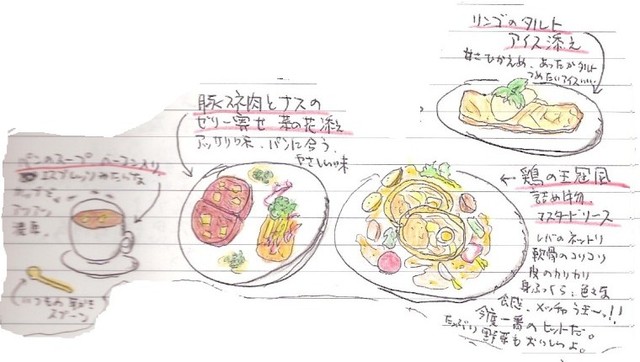 リンゴのタルト
アイス添え
甘さひかえめ、あったかタルト
つめたいアイスいい。
豚スネ肉とナスの
ゼリー寄せ 菜の花添え
アッサリ味、パンに合う、
やさしい味
パンのスープ ベーコン入り
エスプレッソみたいな
カップで
アツアツ
濃厚。
いつもの
スプーン
鶏の王冠風
詰め物
マスタードソース
レバーのネットリ
軟骨のコリコリ
皮のカリカリ
身ふっくら、色々な
食感、メッチャうま〜!!
今度一番のヒットだ。
たっぷり野菜もおいしいよ。